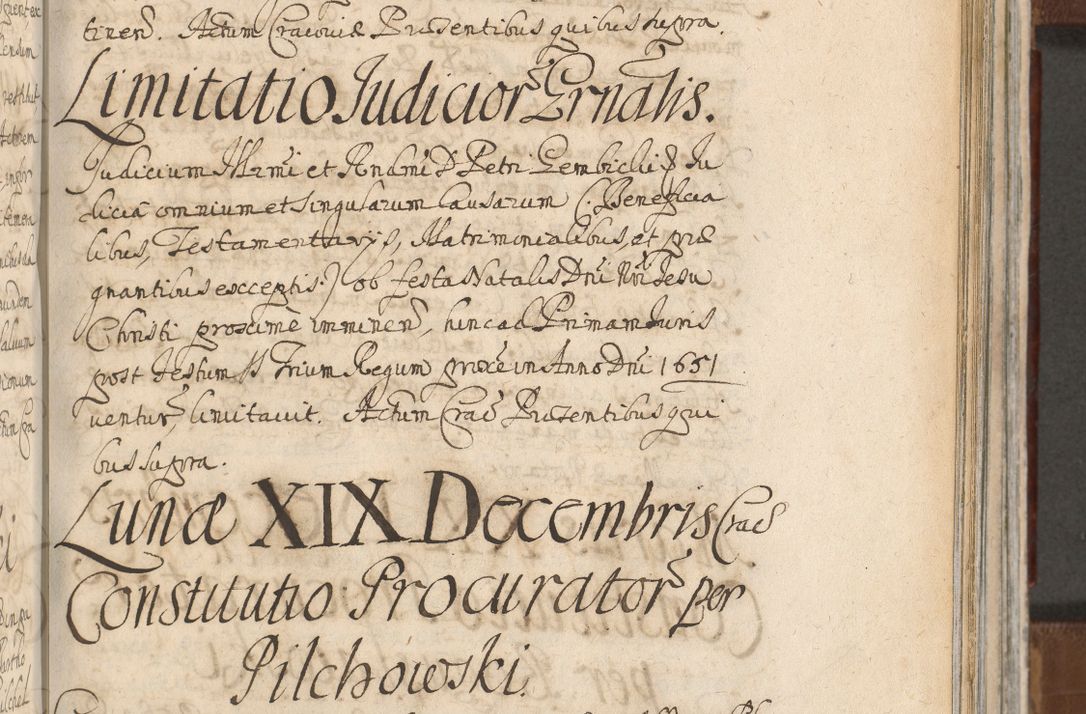 tiren̄. Actum Cracoviæ Præsentibus quibus supra.
Limitatio Judicior̃ Grnalis.
Judicium Illrmi et Rndmi D Petri Gembicki Ju
dicia omnium et singularum causarum (Beneficia
libus, Testamentarys, Matrimonialibus, et præ
gnantibus exceptis) ob festa Natalis Dni Nri Jesu
Christi proxime imminen̄, hinc ad Primam Juris
post festum SS Trium Regum proxe in Anno Dni 1651
ventur̃, limitavit. Actum Crac̄ Præsentibus qui
bus supra.
Lunæ XIX Decembris Crac̄
Constitutio Procurator̃ per
Pilchowski.